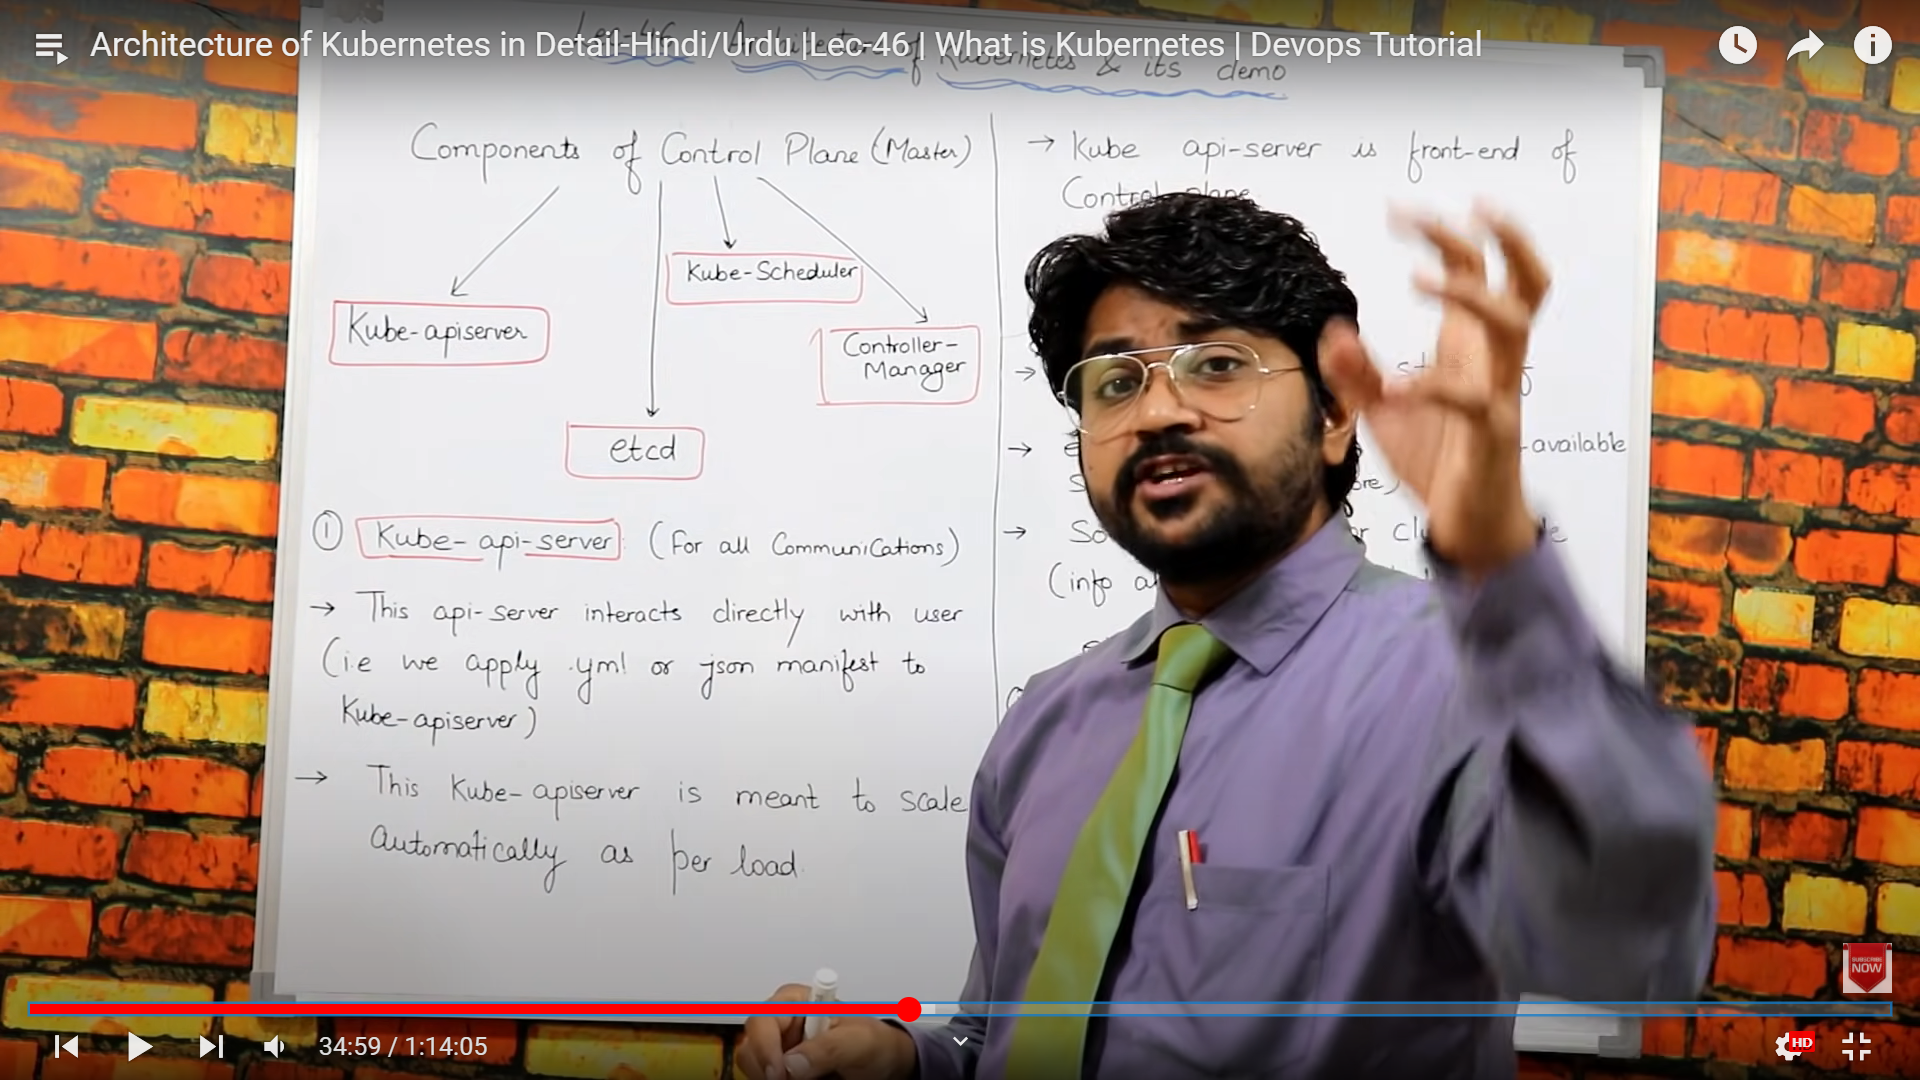 Architecture of Kubernetes in Detail-Hindi/Urdu |Lec-46 | What is Kubernetes | Devops Tutorial
Lec-46 Architecture of Kubernetes & its demo
Components of Control Plane (Master)
Kube-apiserver
Kube-Scheduler
Controller-
Manager
etcd
① Kube-api-server (For all Communications)
→ This api-server interacts directly with user
(i.e we apply .yml or json manifest to
Kube-apiserver)
→ This Kube-apiserver is meant to scale
automatically as per load.
→ Kube api-server is front-end of
Control plane
→
→ -available
→ So
(info
SUBSCRIBE
NOW
34:59 / 1:14:05
HD